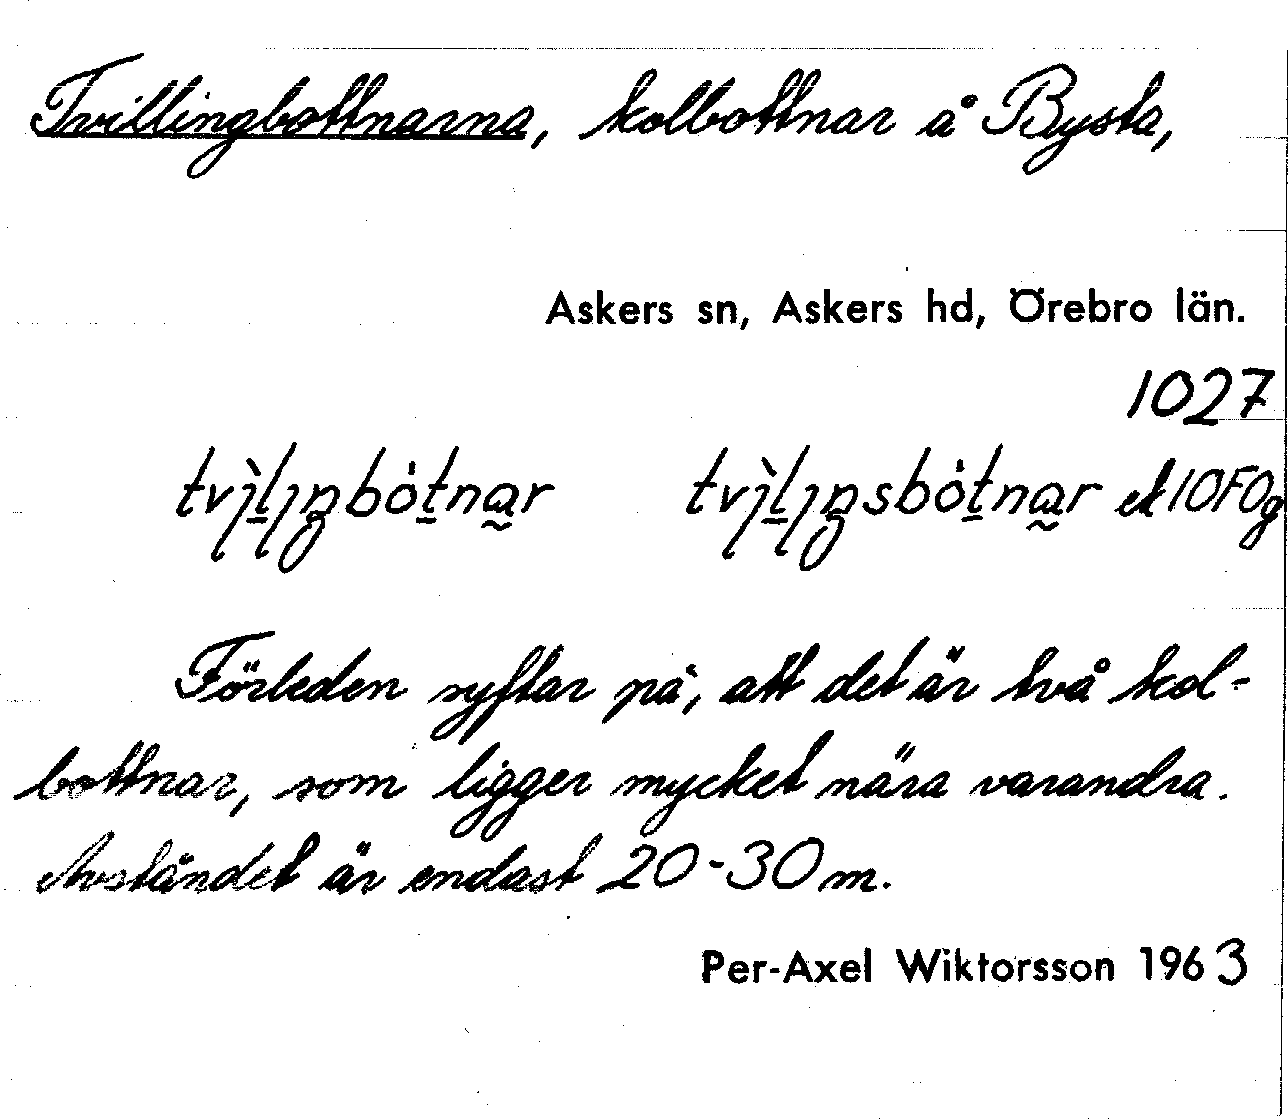 Tvillingbottnarna, kolbottnar å Bysta,
Askers sn, Askers hd, Örebro län.
1027
Förleden syftar på, att det är två kol-
bottnar, som ligger mycket nära varandra.
Avståndet är endast 20-30 m.
Per-Axel Wiktorsson 1963